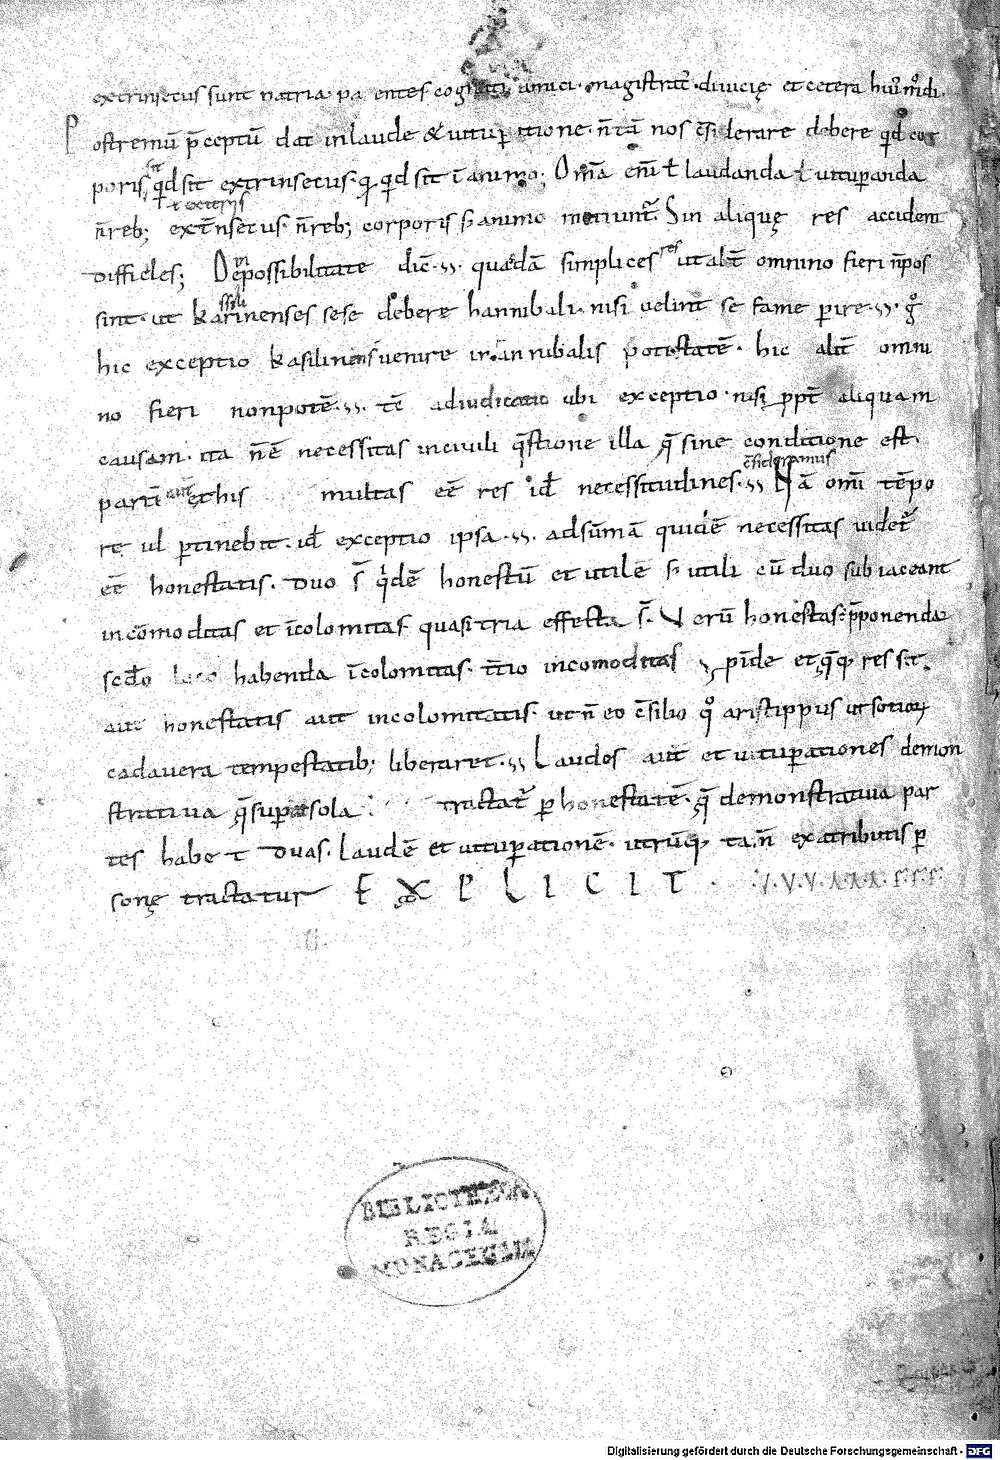 extrinsecus sunt patria pa entes cognati amici · magistrat᷒ · diuicię et cetera hui᷒ m̊di ·
Postremū p̄ceptū dat in laude & uitup̄ tione · n̄ tā nos c̄siderare debere qđ cor
poris, qđ sit extrinsecus · q qđ sit ī animo; Om̄a eni᷒ ł laudanda ł uitup̄anda
ł exteriis
n̄ reb; ext̄nsecus · n̄ reb; corporis s; animo metiunt᷒. Sin aliquę res accident
difficiles; De possibilitate dic̄ · quædā simplices res ut alit̄ omnino fieri n̄ pos
ssili
sint · ut karinenses sese debere hannibali · nisi uelint se fame perire · g̊
hic exceptio kasilinens uenire in annibalis potestatē · hic alit̄ omni
no fieri non potē · tē adiudicatio ubi exceptio · nisi ppt̄ aliquam
causam · ita n̄ ē necessitas in ciuili q̄stione illa q̄ sine conditione est ·
c̄sideramus
partī aut et his multas eē res id̄ necessitudines · Nā om̄i tēpo
re ul ptinebit · id̄ exceptio ipsa · ad sūmā quidē necessitas uidet᷒
eē honestatis · duo s̄ q̇dē honestū et utile s; utili cū duo subiaceant
incōmoditas et īcolomitas quasi tria effecta s̄ · Verū honestas p̄ponenda
scdo loco habenda īcolomitas · t̄tio incomoditas pīde et q̄q res sit
aut honestatis aut incolomitatis · ut n̄ eo c̄silio q̊ aristippus ut sotior
cadauera tempestatib; liberaret · Laudes aut et uitup̄ationes demon
stratiua q̄ sup̄ sola tractat᷒ p honestatē · q̄ demonstratiua par
tes habe t duas · laudē et uitup̄ationē · utrūq tam̄ ex atributis p
sonę tractatur EXPLICIT · V · V · V · A · A · A · F · F · F ·
BIBLIOTHECA
REGIA
MONACENSIS
Digitalisierung gefördert durch die Deutsche Forschungsgemeinschaft - DFG